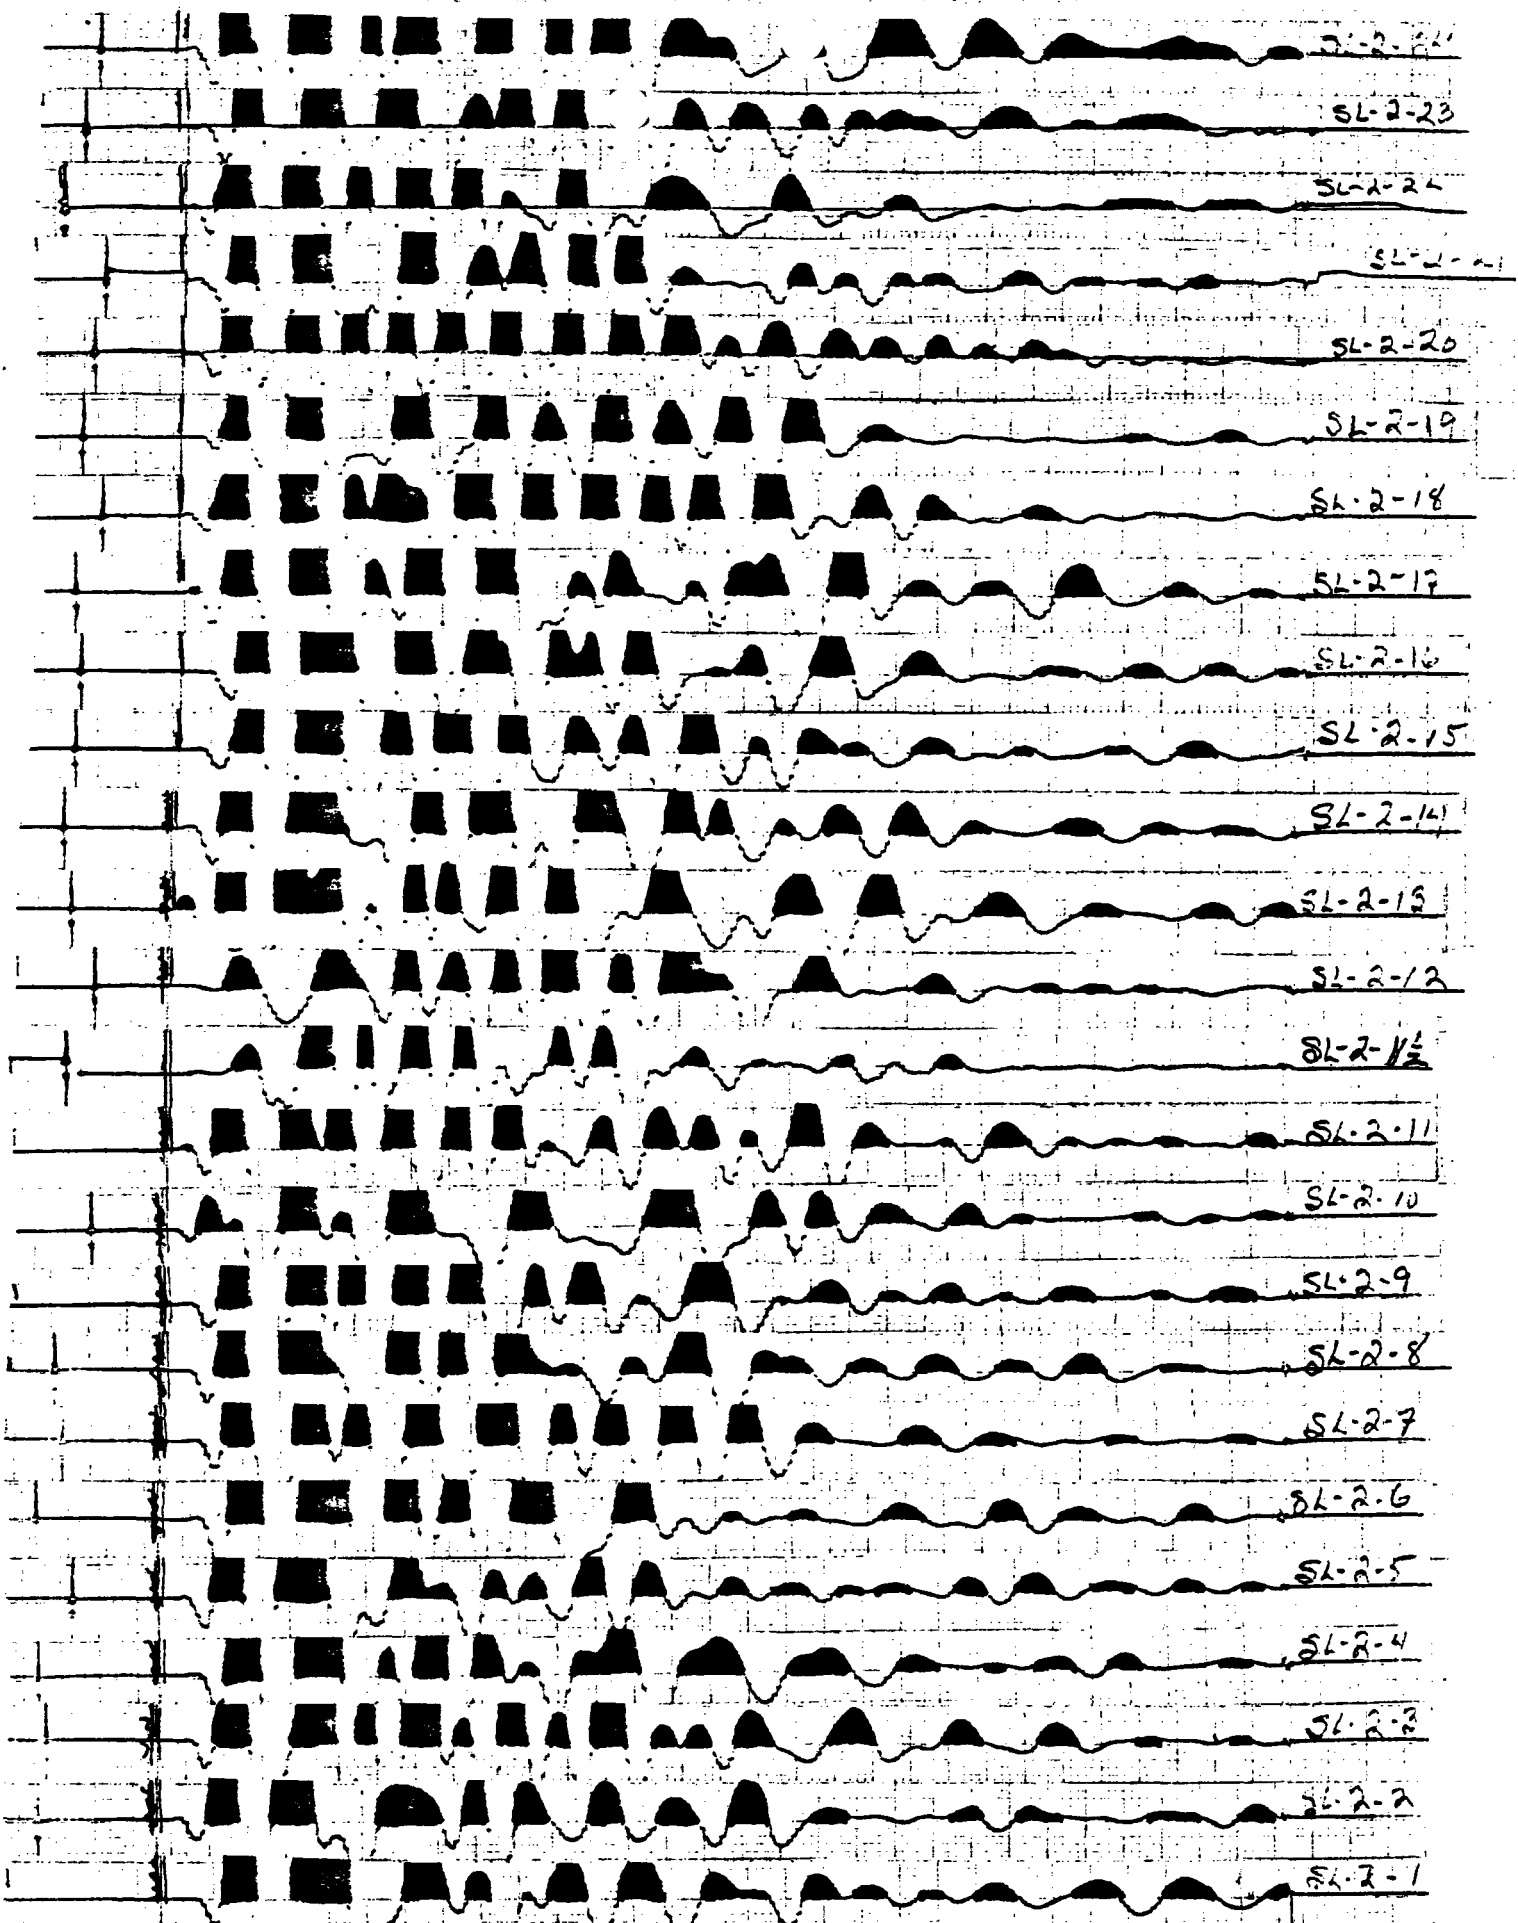 SL-2-23
SL-2-20
SL-2-19
SL-2-18
SL-2-17
SL-2-16
SL-2-15
SL-2-14
SL-2-13
SL-2-12
SL-2-11½
SL-2-11
SL-2-10
SL-2-9
SL-2-8
SL-2-7
SL-2-6
SL-2-5
SL-2-4
SL-2-3
SL-2-2
SL-2-1